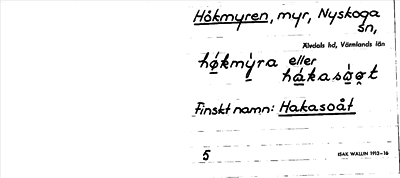 Hökmyren, myr, Nyskoga
sn,
Älvdals hd, Värmlands län
hø̀kmýra eller
hákasòǫt
Finskt namn: Hakasoåt
5
ISAK WALLIN 1913–16